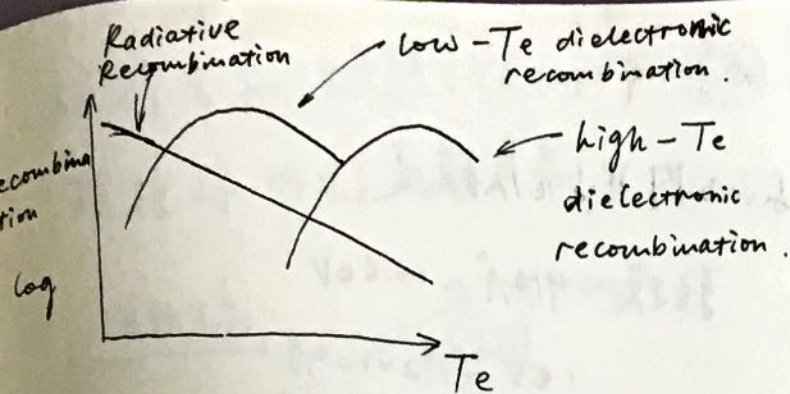 Radiative
Recombination
low-Te dielectronic
recombination.
high-Te
dielectronic
recombination.
ecombina
tion
log
Te